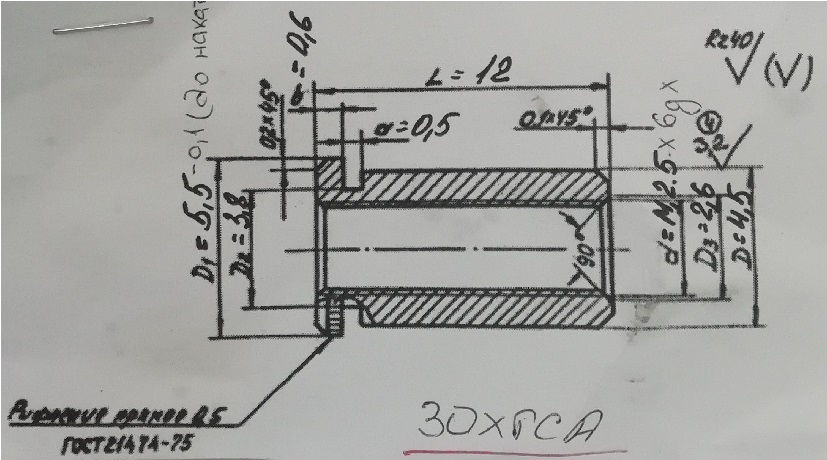 Rz40
(√)
b = 0,6
L = 12
0,2×45°
a = 0,5
0,1×45°
3,2
D₁ = 5,5 -0,1 (до накат
D₂ = 3,8
90°
d = М 2.5 × 6g ×
D₃ = 2,6
D = 4,5
Рифление прямое 0,5
ГОСТ 21474-75
30ХГСА